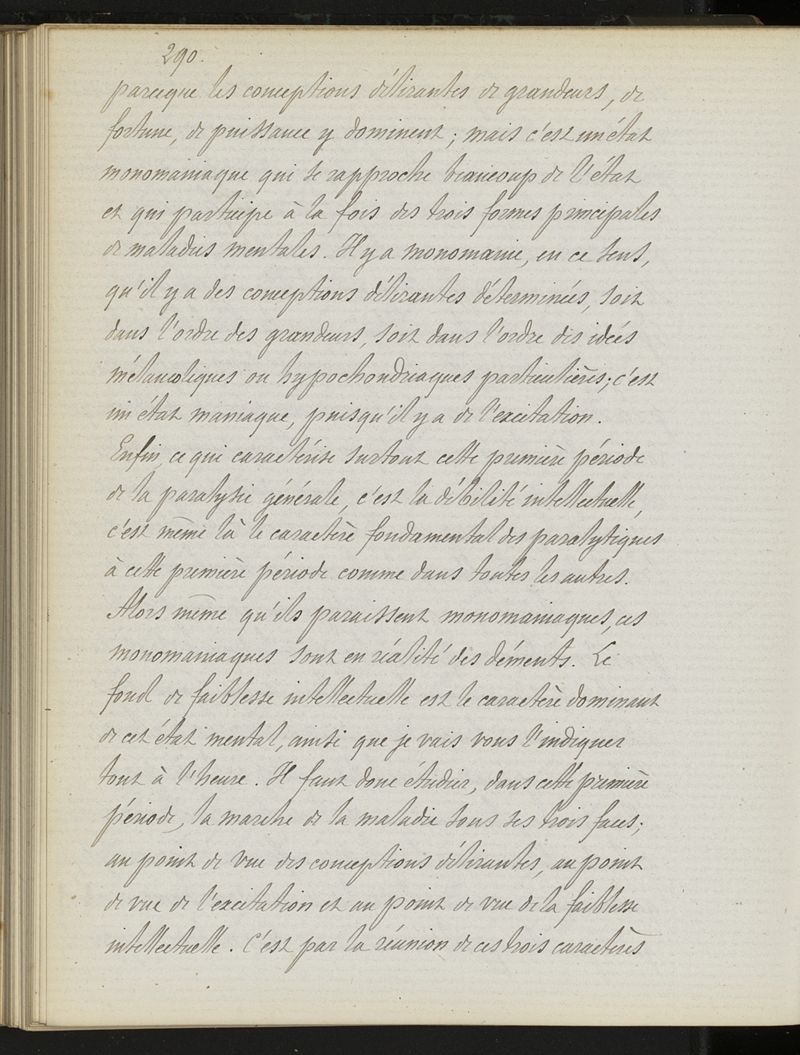 290.
parceque les conceptions délirantes de grandeurs, de
fortune, de puissance y dominent ; mais c'est un état
monomaniaque qui se rapproche beaucoup de l'état
et qui participe à la fois des trois formes principales
de maladies mentales. Il y a monomanie, en ce sens,
qu'il y a des conceptions délirantes déterminées, soit
dans l'ordre des grandeurs, soit dans l'ordre des idées
mélancoliques ou hypochondriaques particulières ; c'est
un état maniaque, puisqu'il y a de l'excitation.
Enfin, ce qui caractérise surtout cette première période
de la paralysie générale, c'est la débilité intellectuelle,
c'est même là le caractère fondamental des paralytiques
à cette première période comme dans toutes les autres.
Alors même qu'ils paraissent monomaniaques, ces
monomaniaques sont en réalité des déments. Le
fond de faiblesse intellectuelle est le caractère dominant
de cet état mental, ainsi que je vais vous l'indiquer
tout à l'heure. Il faut donc étudier, dans cette première
période, la marche de la maladie sous ses trois faces ;
au point de vue des conceptions délirantes, au point
de vue de l'excitation et au point de vue de la faiblesse
intellectuelle. C'est par la réunion de ces trois caractères